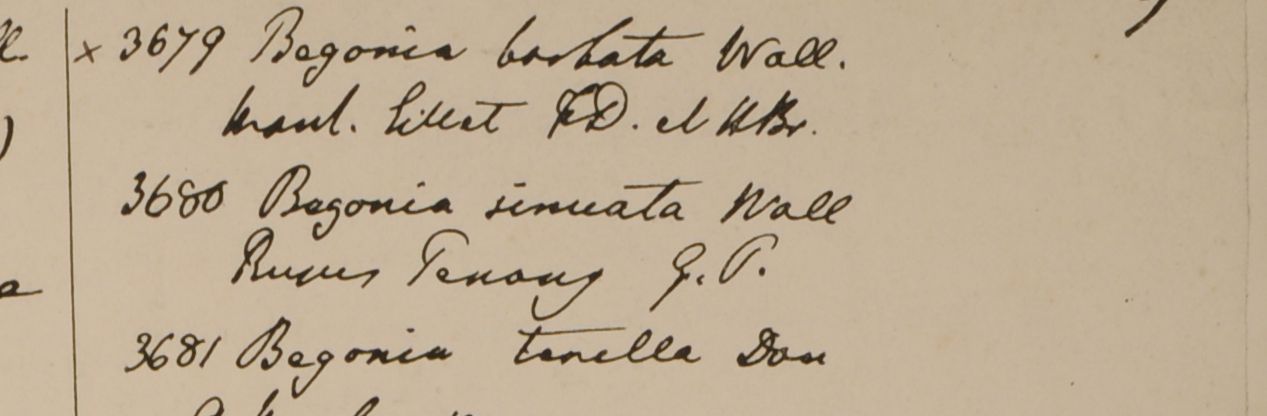 x 3679 Begonia barbata Wall.
Mont. Sillet F.D. et HBr.
3680 Begonia sinuata Wall
Penang G.P.
3681 Begonia tenella Don